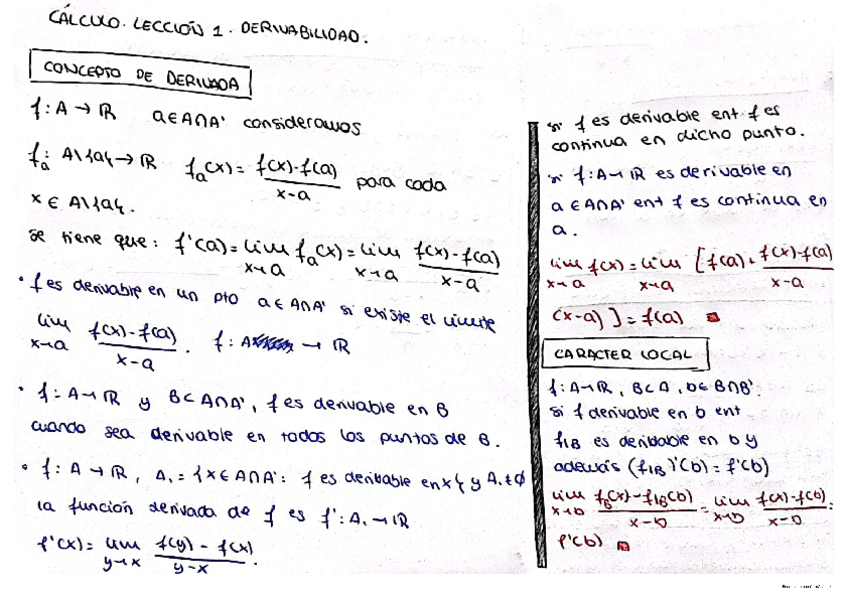 CÁLCULO. LECCIÓN 1. DERIVABILIDAD.
CONCEPTO DE DERIVADA
f: A → ℝ a ∈ A∩A' consideramos
fₐ: A\{a} → ℝ fₐ(x) = (f(x)-f(a))/(x-a) para cada
x ∈ A\{a}.
se tiene que: f'(a) = lim x→a fₐ(x) = lim x→a (f(x)-f(a))/(x-a)
• f es derivable en un pto a ∈ A∩A' si existe el límite
lim x→a (f(x)-f(a))/(x-a). f: A → ℝ
• f: A → ℝ y B ⊂ A∩A', f es derivable en B
cuando sea derivable en todos los puntos de B.
• f: A → ℝ, A₁ = {x ∈ A∩A': f es derivable en x} y A₁ ≠ ∅
la función derivada de f es f': A₁ → ℝ
f'(x) = lim y→x (f(y) - f(x))/(y-x).
si f es derivable ent f es
continua en dicho punto.
si f: A → ℝ es derivable en
a ∈ A∩A' ent f es continua en
a.
lim x→a f(x) = lim x→a [f(a) + (f(x)-f(a))/(x-a)
(x-a)] = f(a)
CARACTER LOCAL
f: A → ℝ, B ⊂ A, b ∈ B∩B'
si f derivable en b ent
f|B es derivable en b y
además (f|B)'(b) = f'(b)
lim x→b (f|B(x) - f|B(b))/(x-b) = lim x→b (f(x)-f(b))/(x-b) =
f'(b)